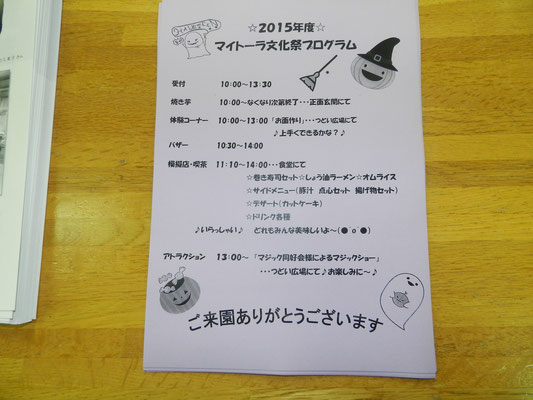 ☆2015年度☆
マイトーラ文化祭プログラム
受付 10:00～13:30
焼き芋 10:00～なくなり次第終了・・・正面玄関にて
体験コーナー 10:00～13:00「お面作り」・・・つどい広場にて
♪上手くできるかな？♪
バザー 10:30～14:00
模擬店・喫茶 11:10～14:00・・・食堂にて
☆巻き寿司セット☆しょう油ラーメン☆オムライス
☆サイドメニュー（豚汁 点心セット 揚げ物セット）
☆デザート（カットケーキ）
☆ドリンク各種
♪いらっしゃい♪ どれもみんな美味しいよ～(●^o^●)
アトラクション 13:00～ 「マジック同好会様によるマジックショー」
・・・つどい広場にて♪お楽しみに～♪
ご来園ありがとうございます